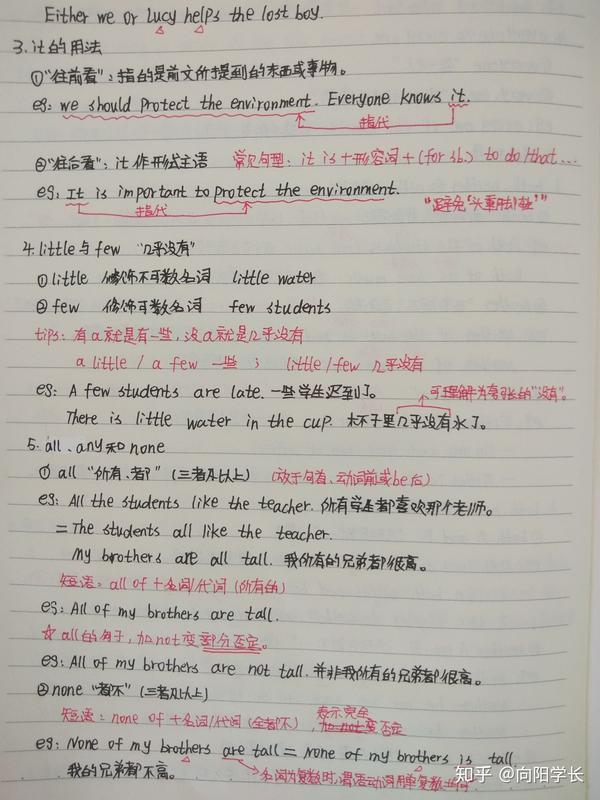 Either we or Lucy helps the lost boy.
3. it的用法
①"往前看"：指的是前文所提到的东西或事物。
eg: we should protect the environment. Everyone knows it.
指代
②"往后看"：it作形式主语 常见句型：it is + 形容词 + (for sb.) to do / that...
eg: It is important to protect the environment.
指代 "避免'头重脚轻'"
4. little与few "几乎没有"
① little 修饰不可数名词 little water
② few 修饰可数名词 few students
tips: 有a就是有一些，没a就是几乎没有
a little / a few 一些； little/few 几乎没有
eg: A few students are late. 一些学生迟到了。 可理解为夸张的"没有"。
There is little water in the cup. 杯子里几乎没有水了。
5. all、any和none
① all "所有、都" (三者及以上) (放于句首、动词前或be后)
eg: All the students like the teacher. 所有学生都喜欢那个老师。
= The students all like the teacher.
My brothers are all tall. 我所有的兄弟都很高。
短语：all of + 名词/代词 (所有的)
eg: All of my brothers are tall.
☆ all的句子，加not变部分否定。
eg: All of my brothers are not tall. 并非我所有的兄弟都很高。
② none "都不" (三者及以上)
短语：none of + 名词/代词 (全都不)， 表示完全否定
eg: None of my brothers are tall = None of my brothers is tall.
我的兄弟都不高。 名词为复数时，谓语动词用单复数
知乎 @向阳学长